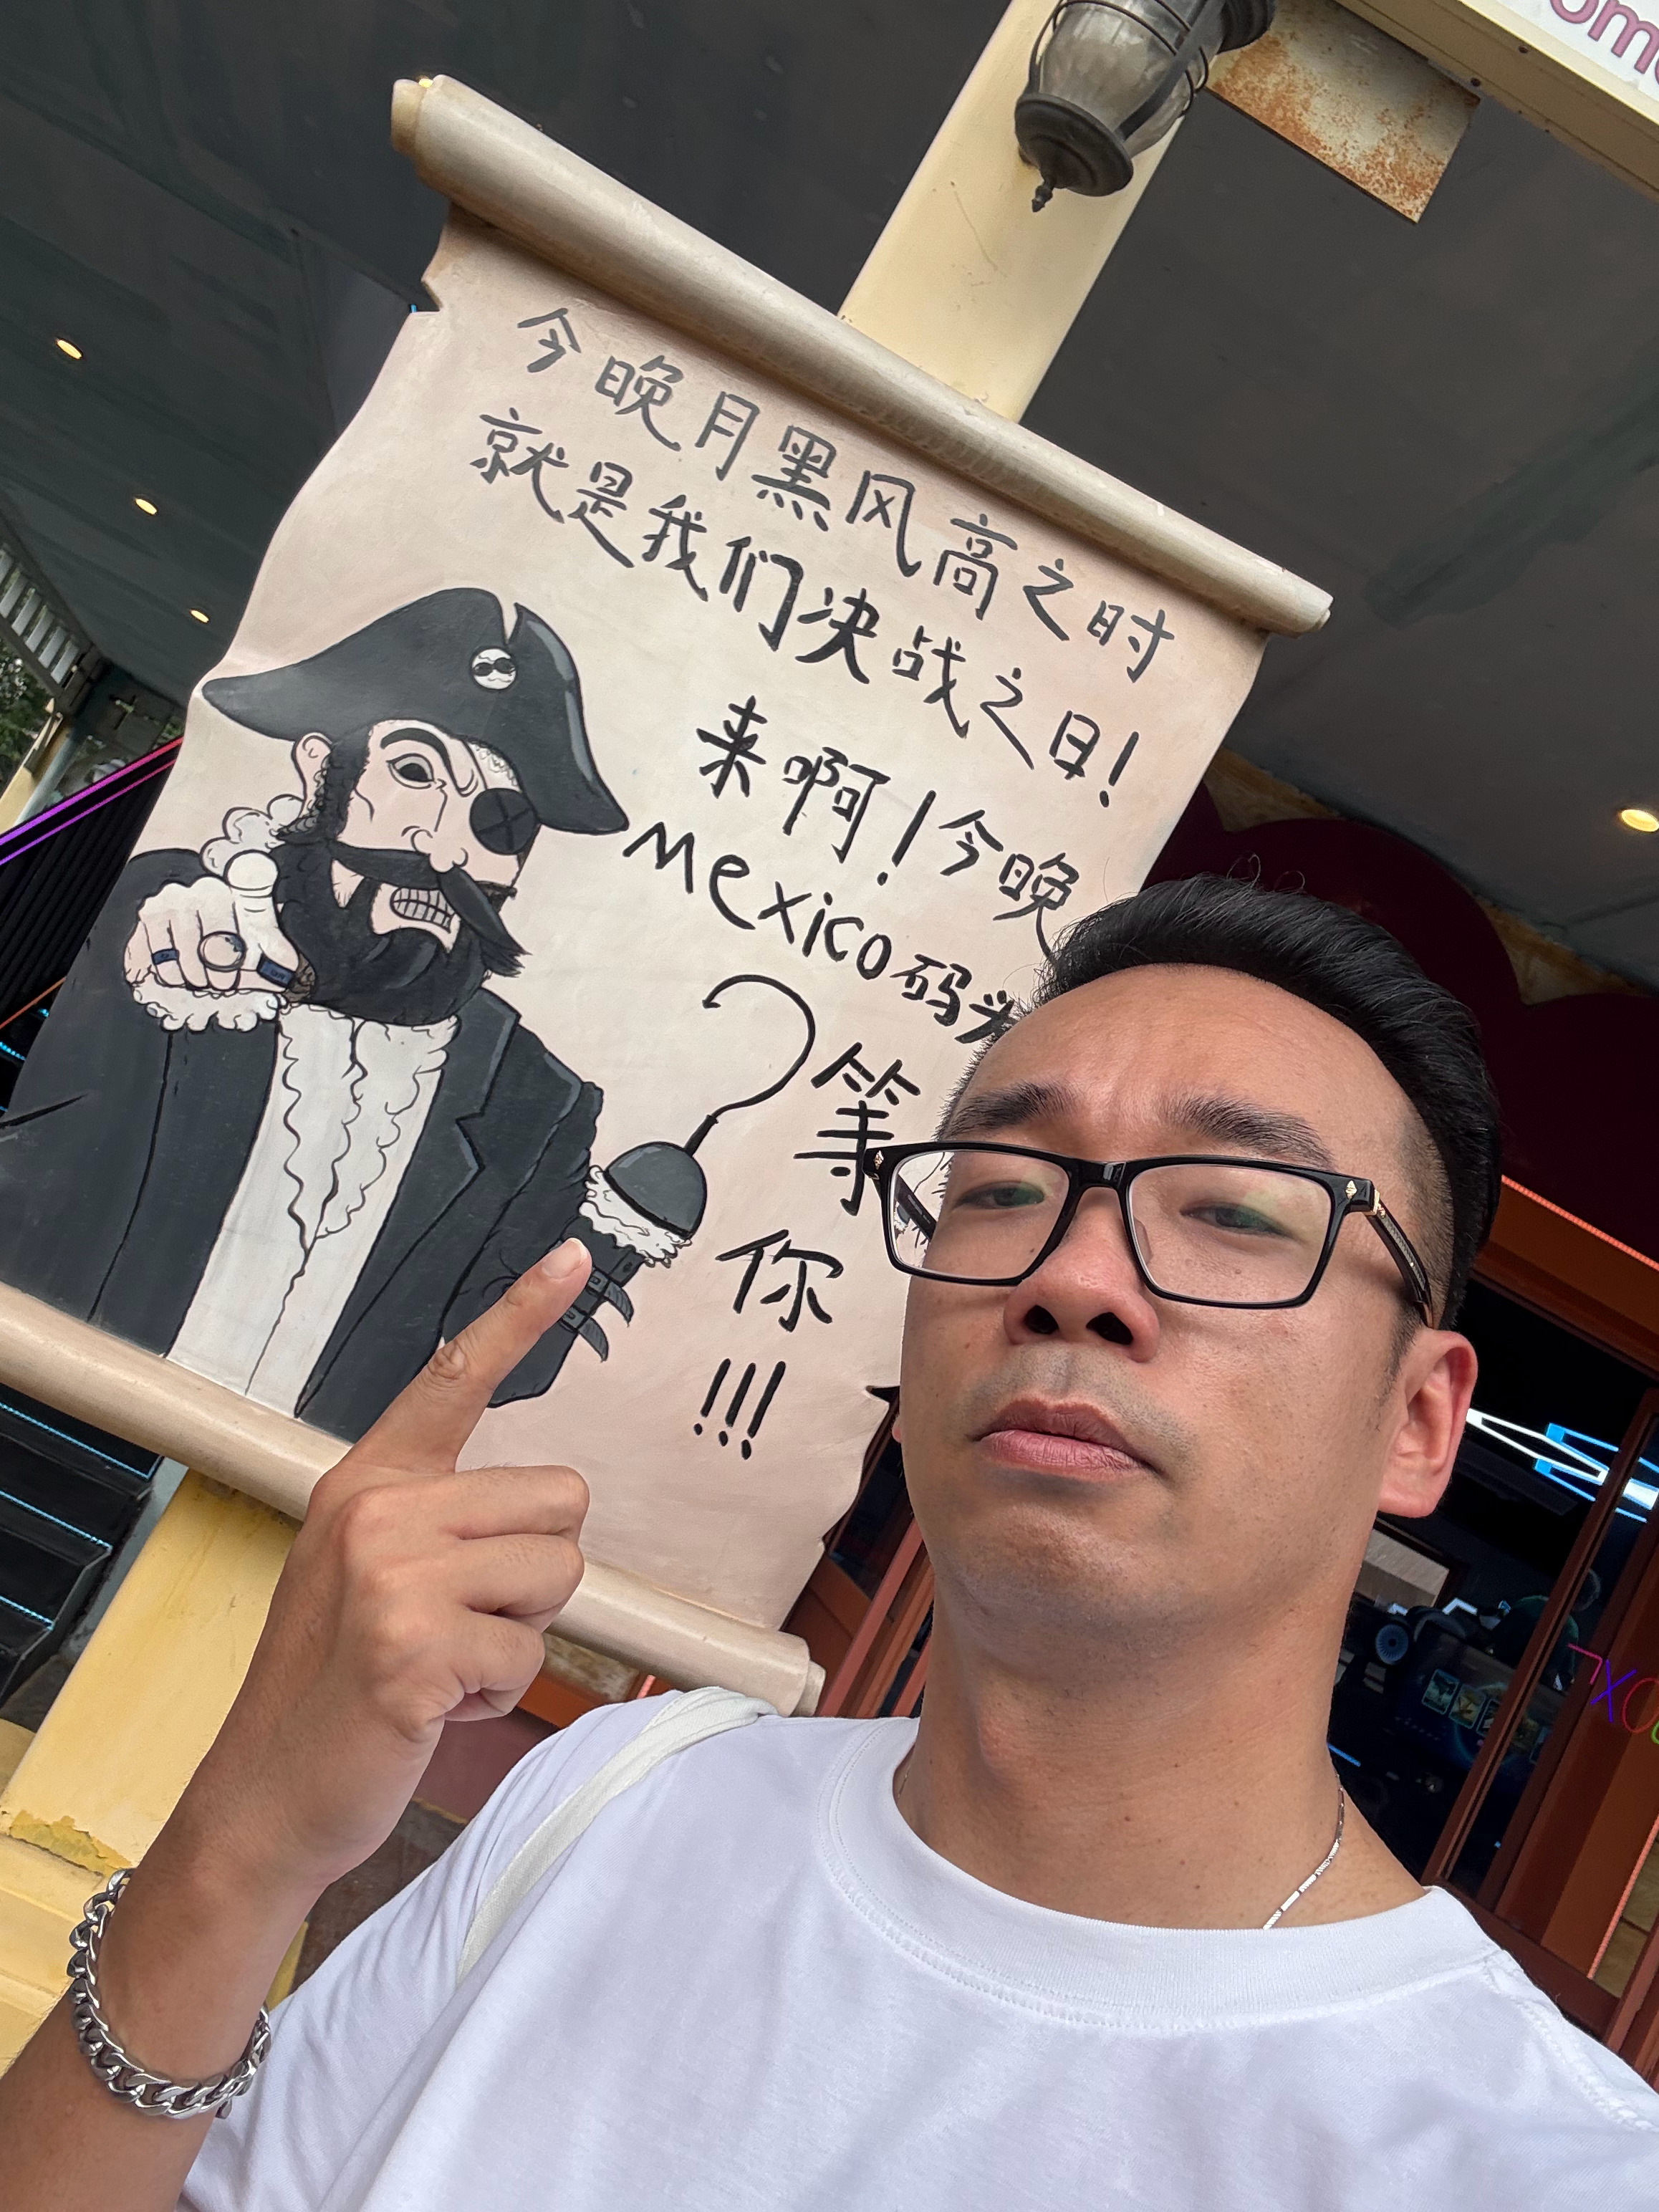 今晚月黑风高之时
就是我们决战之日!
来啊!今晚
Mexico码头
等
你
!!!